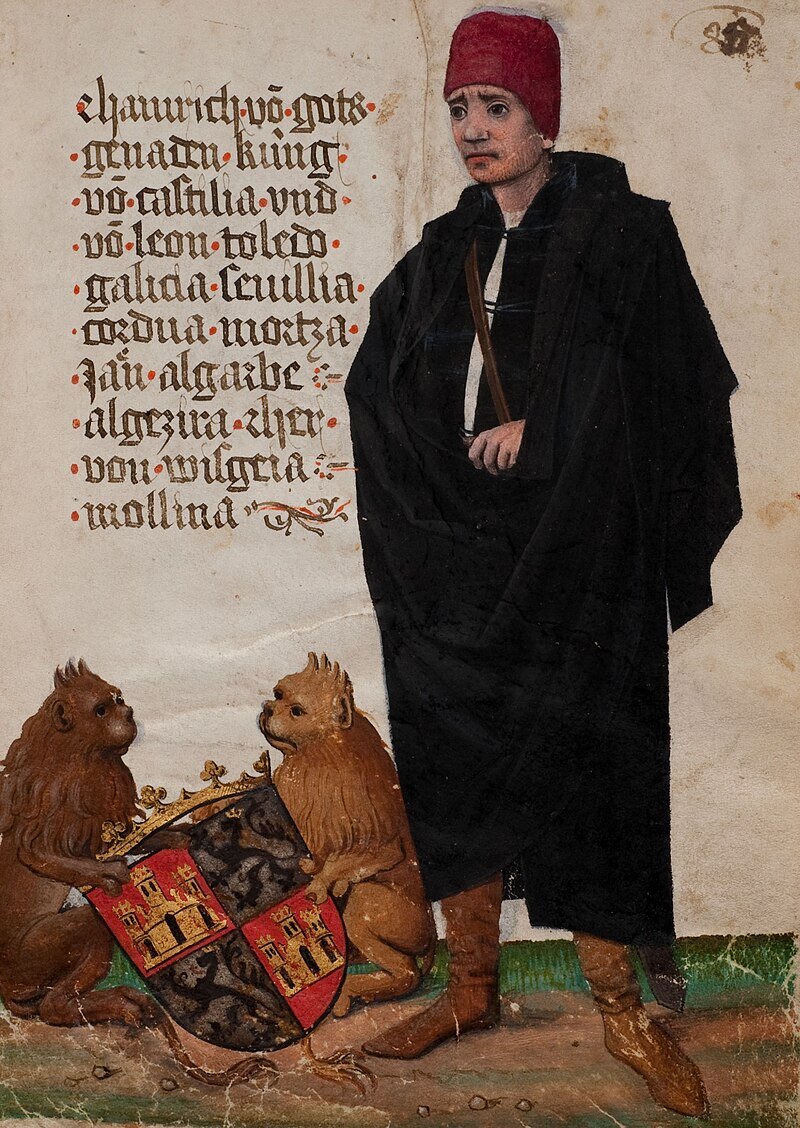 ·Hainrich·vō·gots·
·genaden·küng·
·vō·castilia·vnd·
·vō·leon·toledo·
·galicia·seuillia·
·cordua·mortza·
·Jaẽn·algarbe
·algezira·vnd
·von·wisgeia
·mollina